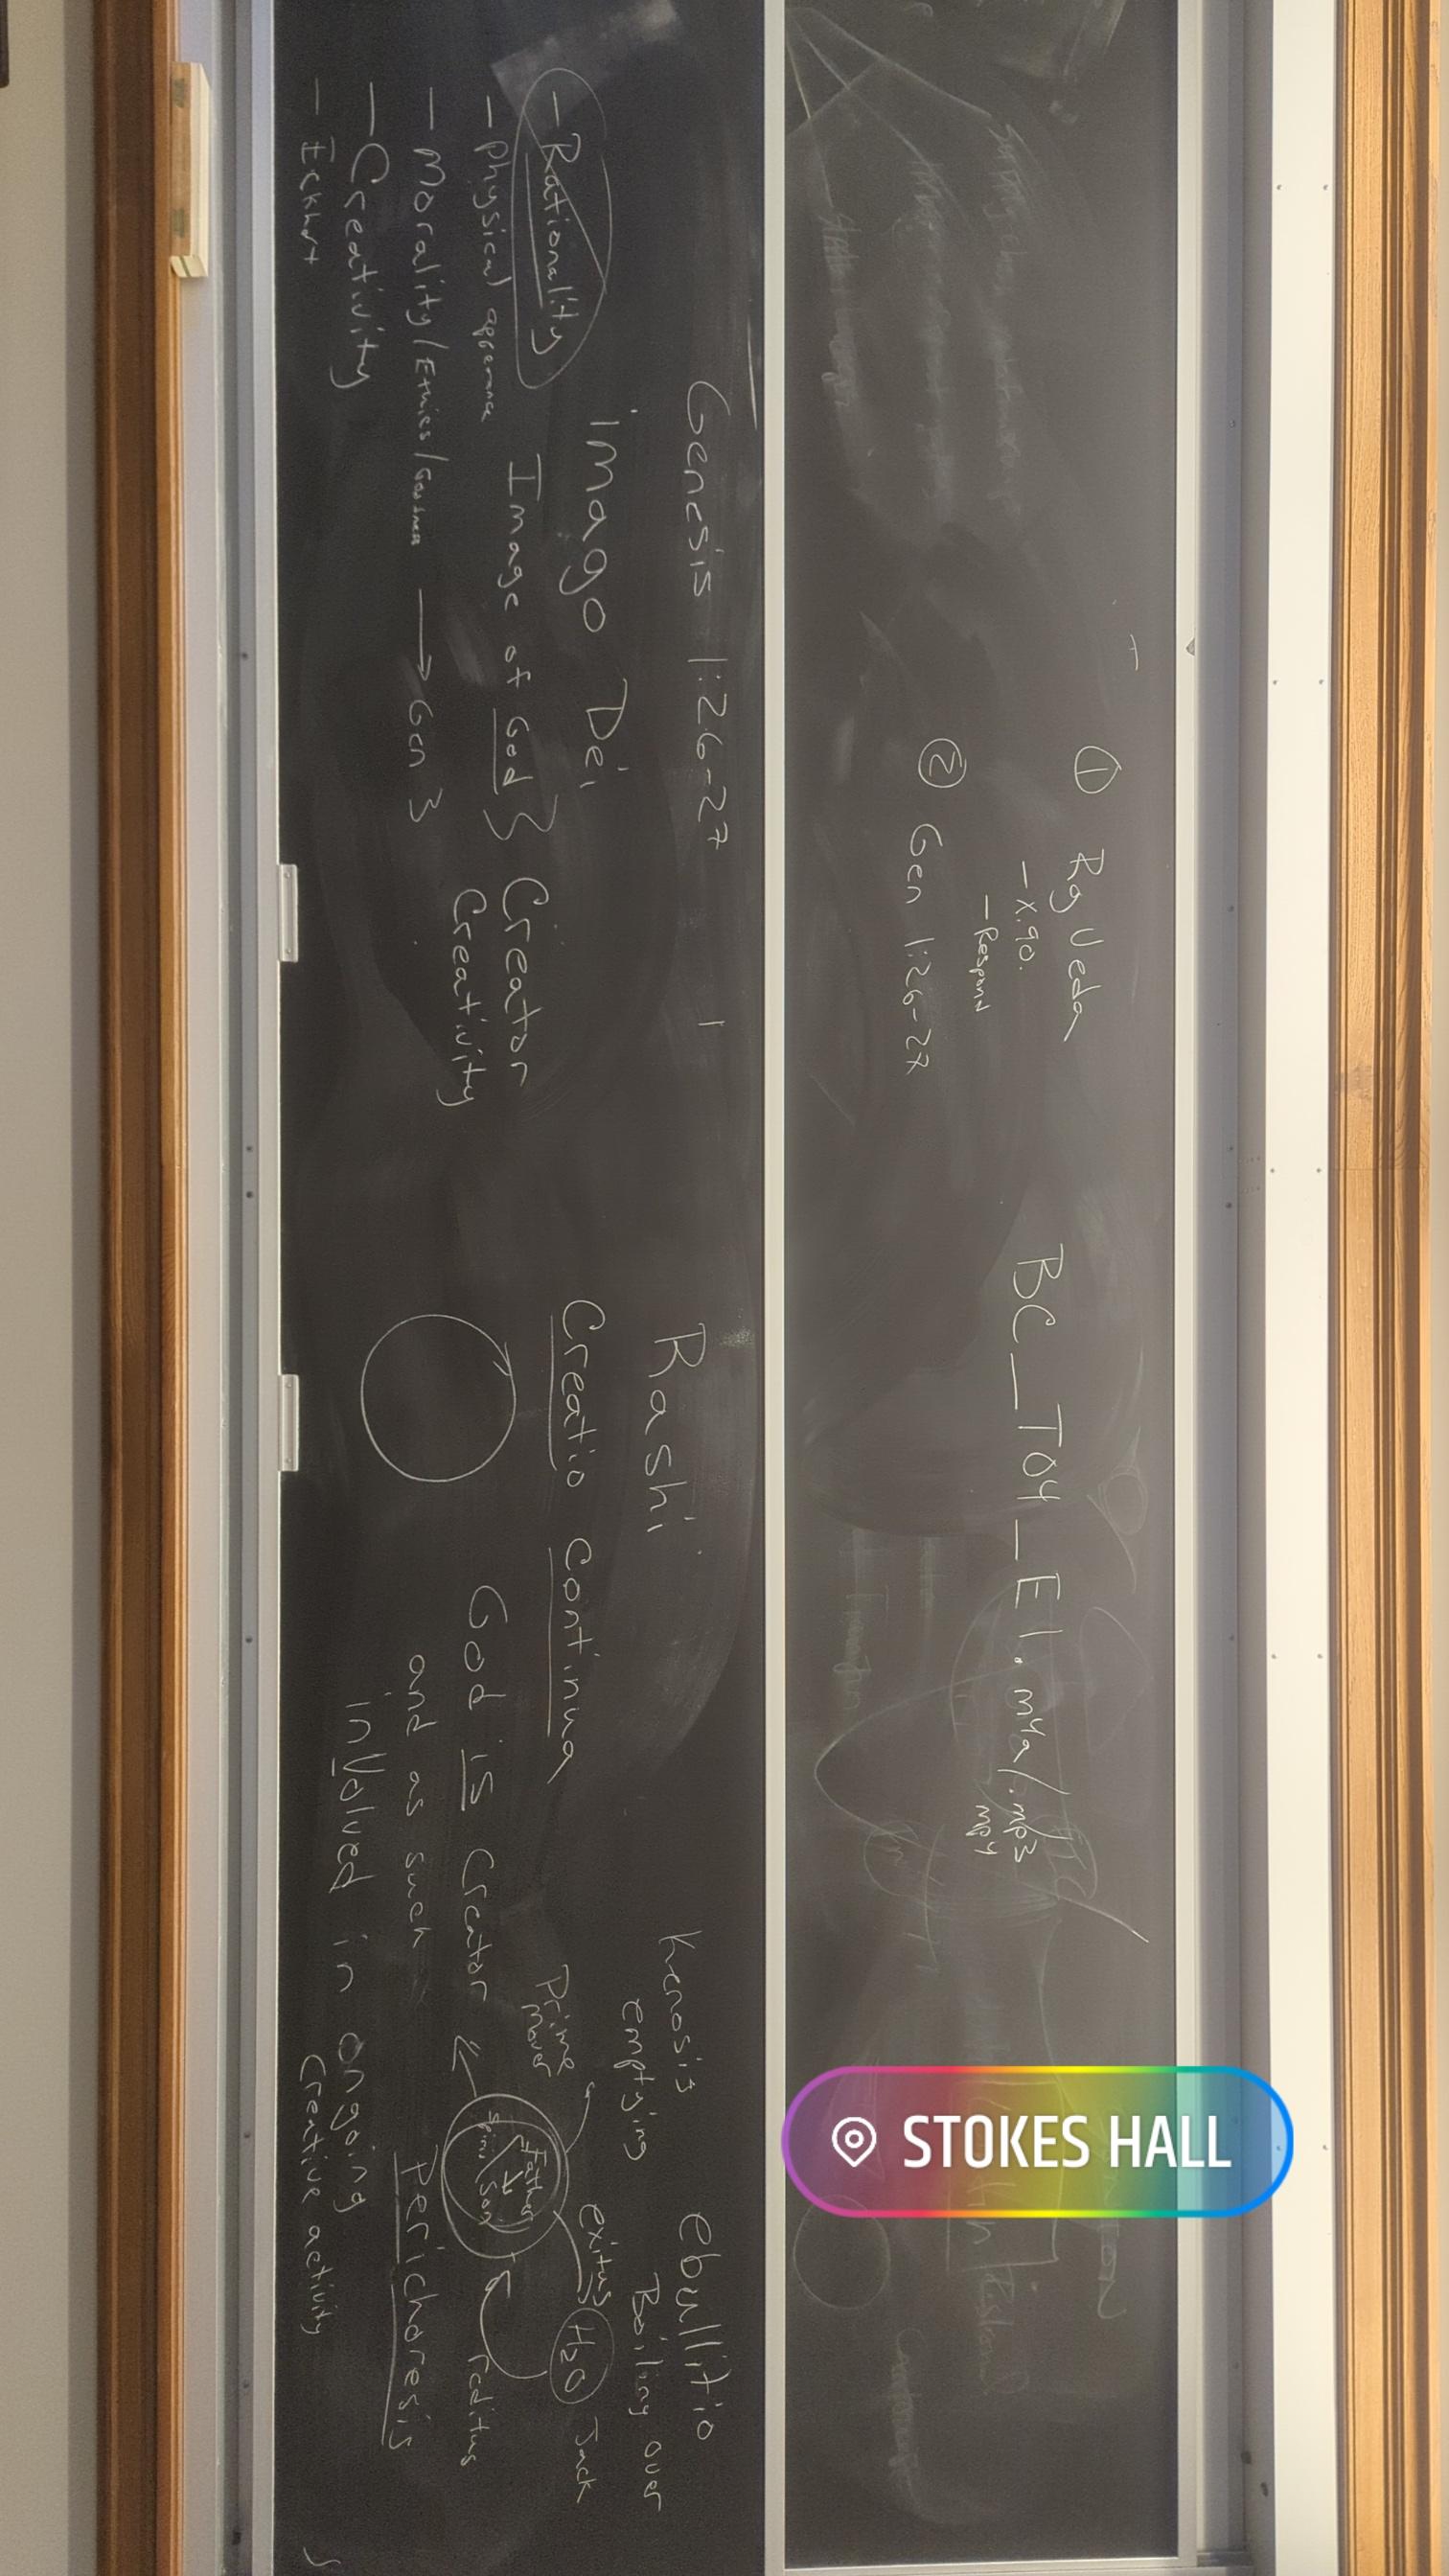 ① Rg Veda
- X.90.
- Respond
② Gen 1:26-27
BC_T04_E1.m4a/.mp3
mp4
STOKES HALL
Genesis 1:26-27
imago Dei
Image of God } Creator
Creativity
- Rationality
- Physical apperance
- Morality/Ethics/Goodness → Gen 3
- Creativity
- Eckhart
Rashi
Creatio continua
God is Creator
and as such
involved in ongoing
creative activity
Kenosis
emptying
ebullitio
Boiling over
Prime
mover
exitus
H2O
Jack
Father
Spirit
Son
reditus
Perichoresis